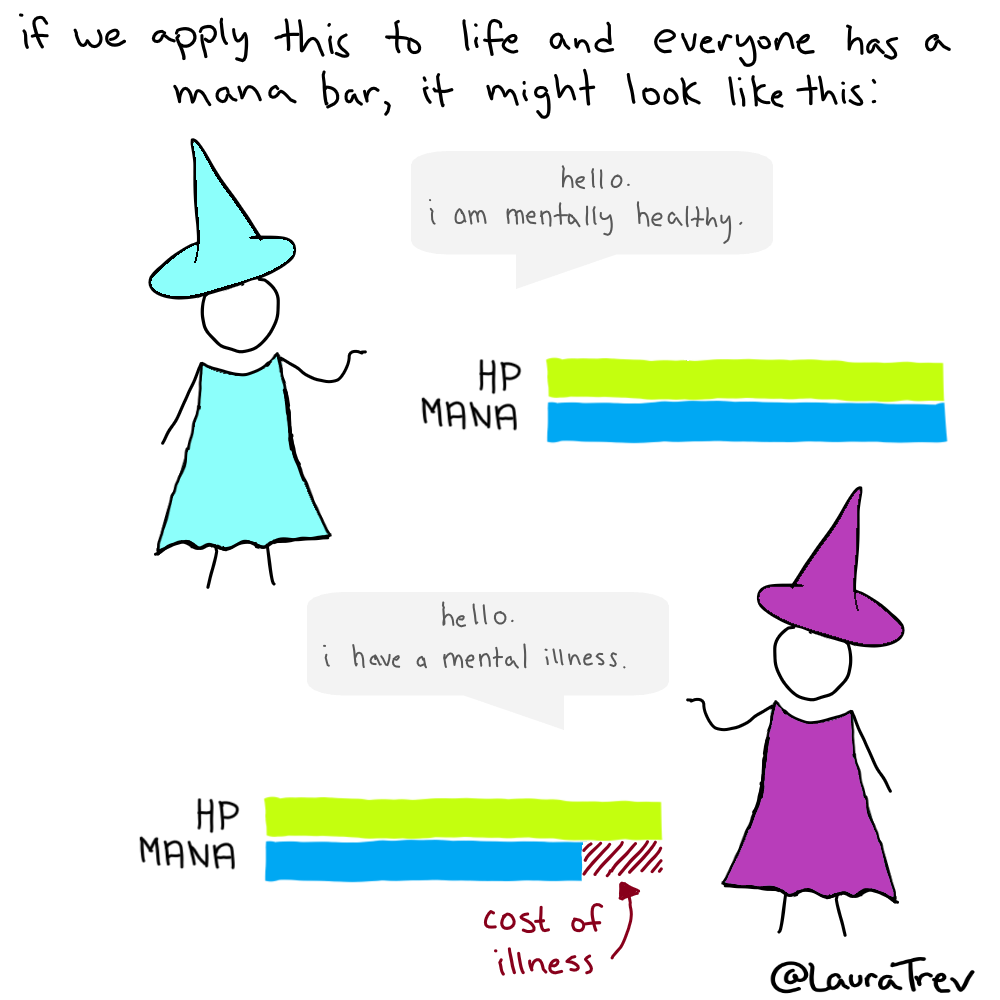 if we apply this to life and everyone has a
mana bar, it might look like this:
hello.
i am mentally healthy.
HP
MANA
hello.
i have a mental illness.
HP
MANA
cost of
illness
@LauraTrev